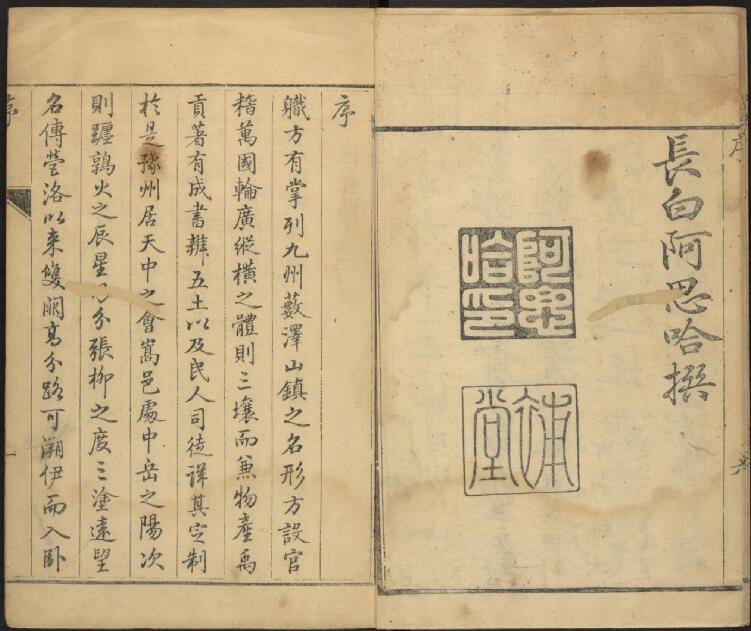 長白阿思哈撰
阿思哈印
補堂
序
職方有掌列九州藪澤山鎮之名形方設官
稽萬國輪廣縱橫之體則三壤而兼物產禹
貢著有成書辨五土以及民人司徒詳其定制
於是豫州居天中之會嵩邑處中岳之陽次
則躔鶉火之辰星分張柳之度三塗遠望
名傳瑩洛以来雙闕高分路可溯伊而入卧
序
一